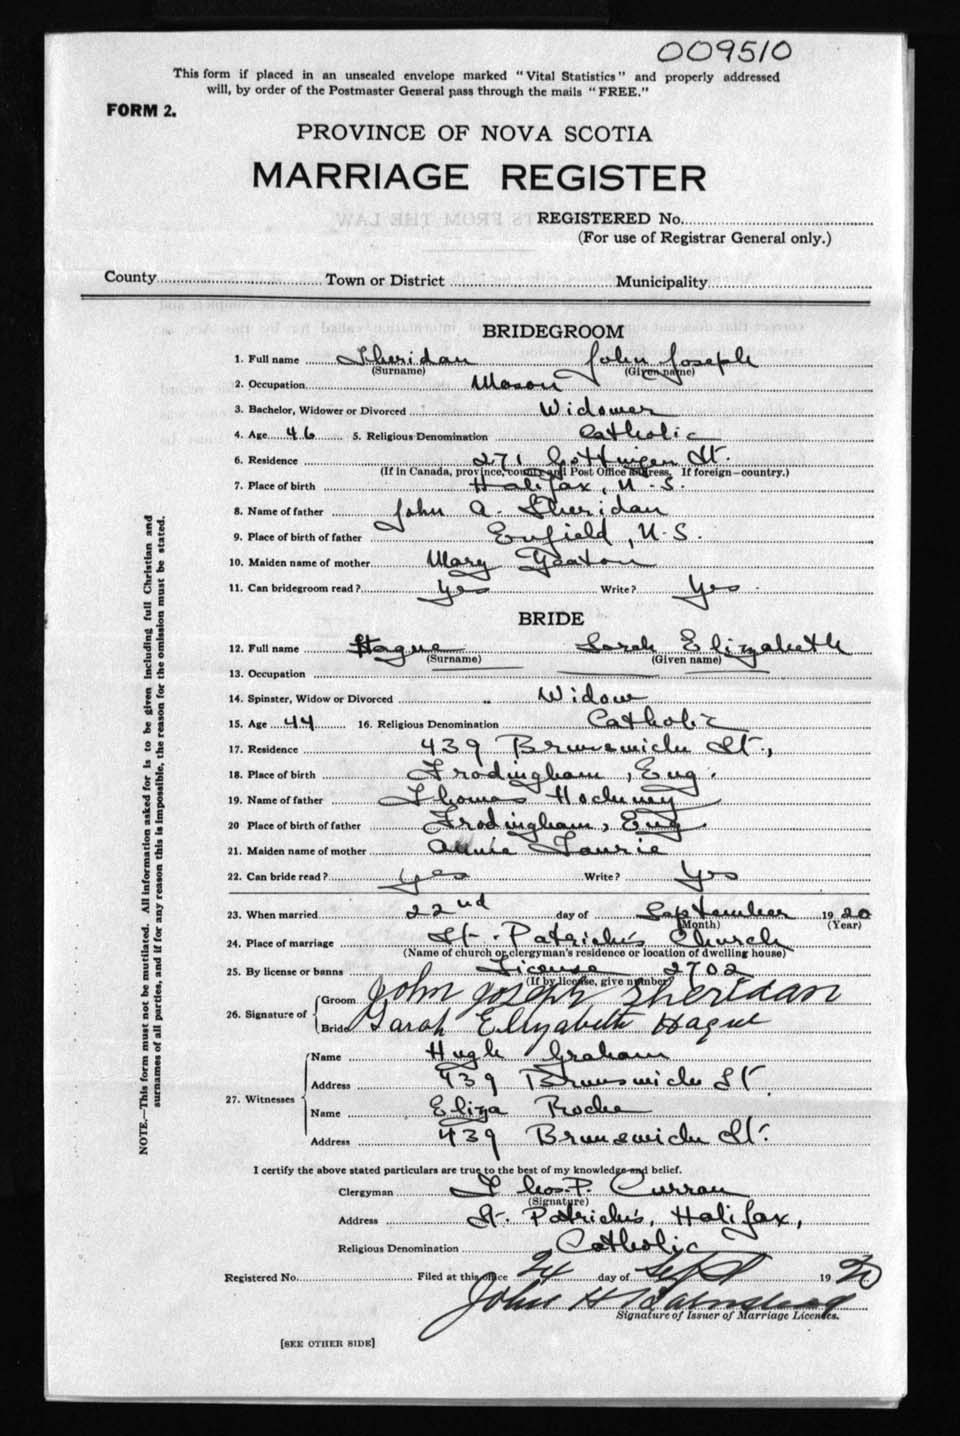 009510
This form if placed in an unsealed envelope marked "Vital Statistics" and properly addressed
will, by order of the Postmaster General pass through the mails "FREE."
FORM 2.
PROVINCE OF NOVA SCOTIA
MARRIAGE REGISTER
REGISTERED No.
(For use of Registrar General only.)
County Town or District Municipality
BRIDEGROOM
1. Full name Sheridan John Joseph
(Surname) (Given name)
2. Occupation Mason
3. Bachelor, Widower or Divorced Widower
4. Age 46 5. Religious Denomination Catholic
6. Residence 271 Gottingen St.
(If in Canada, province, county and Post Office address. If foreign—country.)
7. Place of birth Halifax, N.S.
8. Name of father John A. Sheridan
9. Place of birth of father Enfield, N.S.
10. Maiden name of mother Mary Yeaton
11. Can bridegroom read? Yes Write? Yes
BRIDE
12. Full name Hague Sarah Elizabeth
(Surname) (Given name)
13. Occupation
14. Spinster, Widow or Divorced Widow
15. Age 44 16. Religious Denomination Catholic
17. Residence 439 Brunswick St.,
18. Place of birth Frodingham, Eng.
19. Name of father Thomas Hockney
20 Place of birth of father Frodingham, Eng.
21. Maiden name of mother Annie Lourie
22. Can bride read? Yes Write? Yes
23. When married 22nd day of September 1920
(Month) (Year)
24. Place of marriage St. Patrick's Church
(Name of church or clergyman's residence or location of dwelling house)
25. By license or banns License 2702
(If by license, give number)
26. Signature of Groom John Joseph Sheridan
Bride Sarah Elizabeth Hague
27. Witnesses
Name Hugh Graham
Address 439 Brunswick St
Name Eliza Roche
Address 439 Brunswick St.
I certify the above stated particulars are true to the best of my knowledge and belief.
Clergyman Thos. P. Curran
(Signature)
Address St. Patrick's, Halifax,
Religious Denomination Catholic
Registered No. Filed at this office 24 day of Sept 1920
John H
Signature of Issuer of Marriage Licenses.
[SEE OTHER SIDE]
NOTE.—This form must not be mutilated. All information asked for is to be given including full Christian and
surnames of all parties, and if for any reason this is impossible, the reason for the omission must be stated.